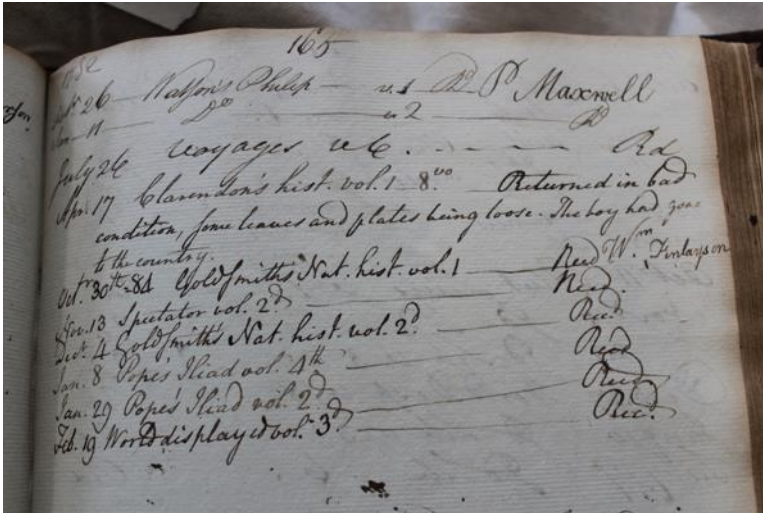 165
1782
26 Watson's Philip v. 1 Rd P Maxwell
11 Do v 2 Rd
July 26 voyages v 6. Rd
Apr. 17 Clarendon's hist. vol. 1 8.vo Returned in bad
condition, some leaves and plates being loose. The boy had gone
to the country.
Octr. 30th -84 Goldsmith's Nat. hist. vol. 1 Recd Wm. Finlayson
Nov. 13 Spectator vol. 2d Recd.
Dect. 4 Goldsmith's Nat. hist. vol. 2d. Recd.
Jan. 8 Pope's Iliad vol. 4th Recd
Jan. 29 Pope's Iliad vol. 2d Recd
Feb. 19 World displayed vol. 3d Recd.